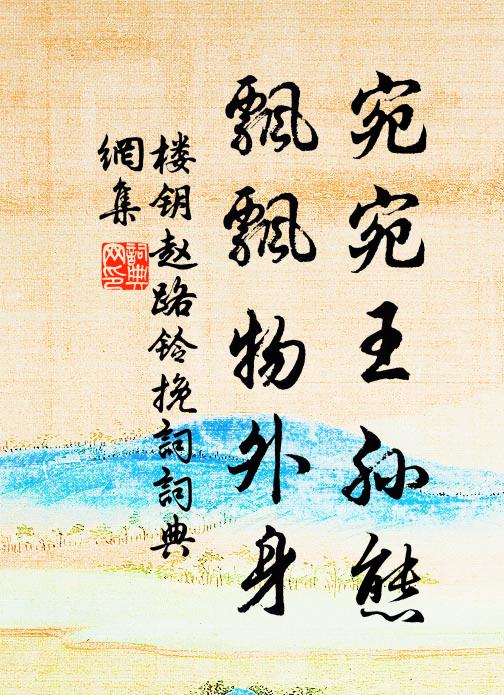 宛宛王孙態
飘飘物外身
楼钥赵路铃挽詞詞典
網集
詞典
网印